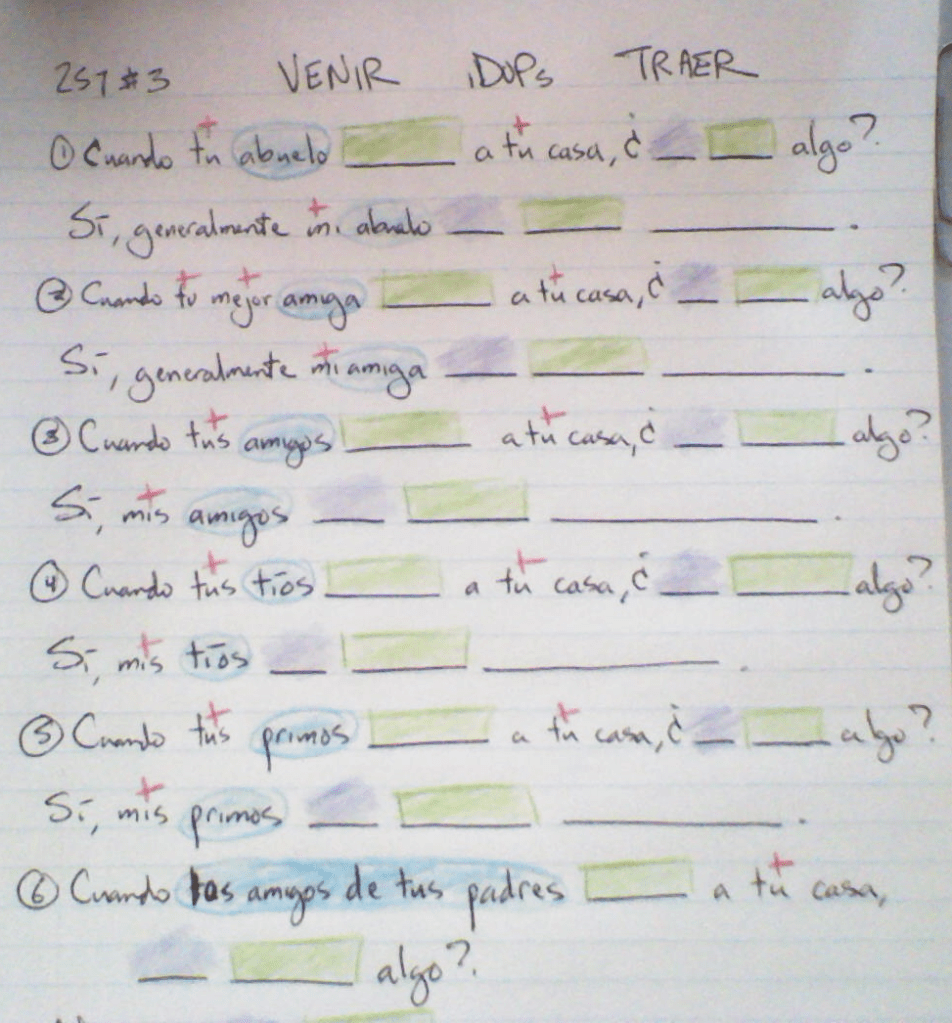 2ST #3 VENIR iDOPs TRAER
① Cuando tu abuelo ______ a tu casa, ¿ __ ____ algo?
Sí, generalmente mi abuelo ___ _____ __________.
② Cuando tu mejor amiga ______ a tu casa, ¿ __ ____ algo?
Sí, generalmente mi amiga ___ _____ __________.
③ Cuando tus amigos ______ a tu casa, ¿ __ _____ algo?
Sí, mis amigos ___ _____ __________.
④ Cuando tus tíos ______ a tu casa, ¿ __ _____ algo?
Sí, mis tíos ___ _____ __________.
⑤ Cuando tus primos ______ a tu casa, ¿ __ ____ algo?
Sí, mis primos ___ _____ __________.
⑥ Cuando los amigos de tus padres _____ a tu casa,
___ ______ algo?